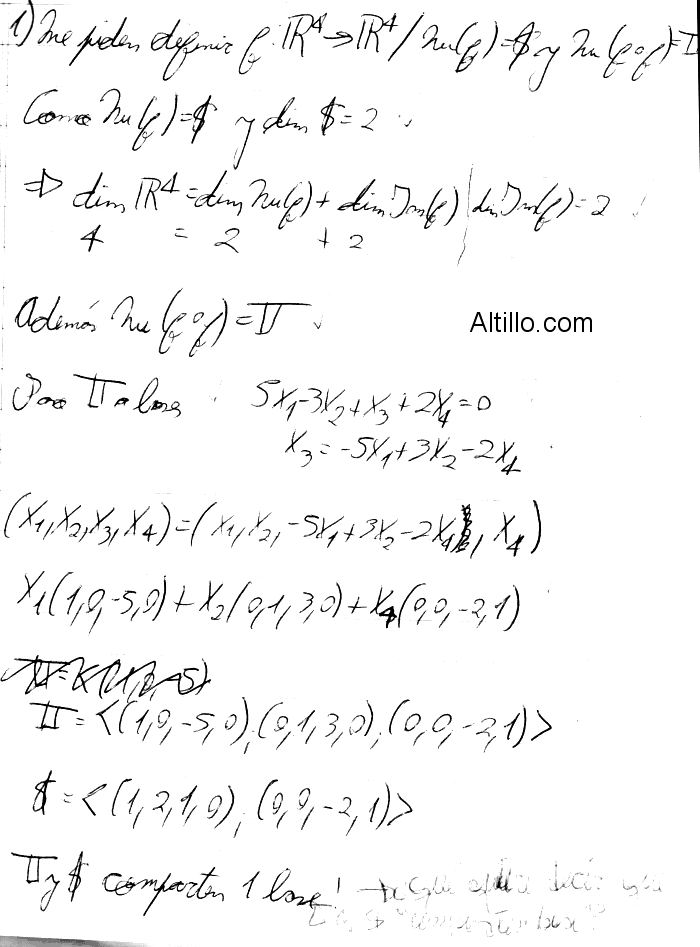 1) Me piden definir f: ℝ⁴→ℝ⁴/ Nu(f)=$ y Nu(f∘f)=Π
Como Nu(f)=$ y dim $=2
⇒ dim ℝ⁴=dim Nu(f)+dim Im(f) | dim Im(f)=2
4 = 2 + 2
Además Nu(f∘f)=Π
Altillo.com
Para Π a base 5X₁-3X₂+X₃+2X₄=0
X₃=-5X₁+3X₂-2X₄
(X₁,X₂,X₃,X₄)=(X₁,X₂,-5X₁+3X₂-2X₄, X₄)
X₁(1,0,-5,0)+X₂(0,1,3,0)+X₄(0,0,-2,1)
Π=<(1,0,-5,0),(0,1,3,0),(0,0,-2,1)>
$=<(1,2,1,0),(0,0,-2,1)>
Π y $ comparten 1 base! → decir que
Π y $ "comparten base"?